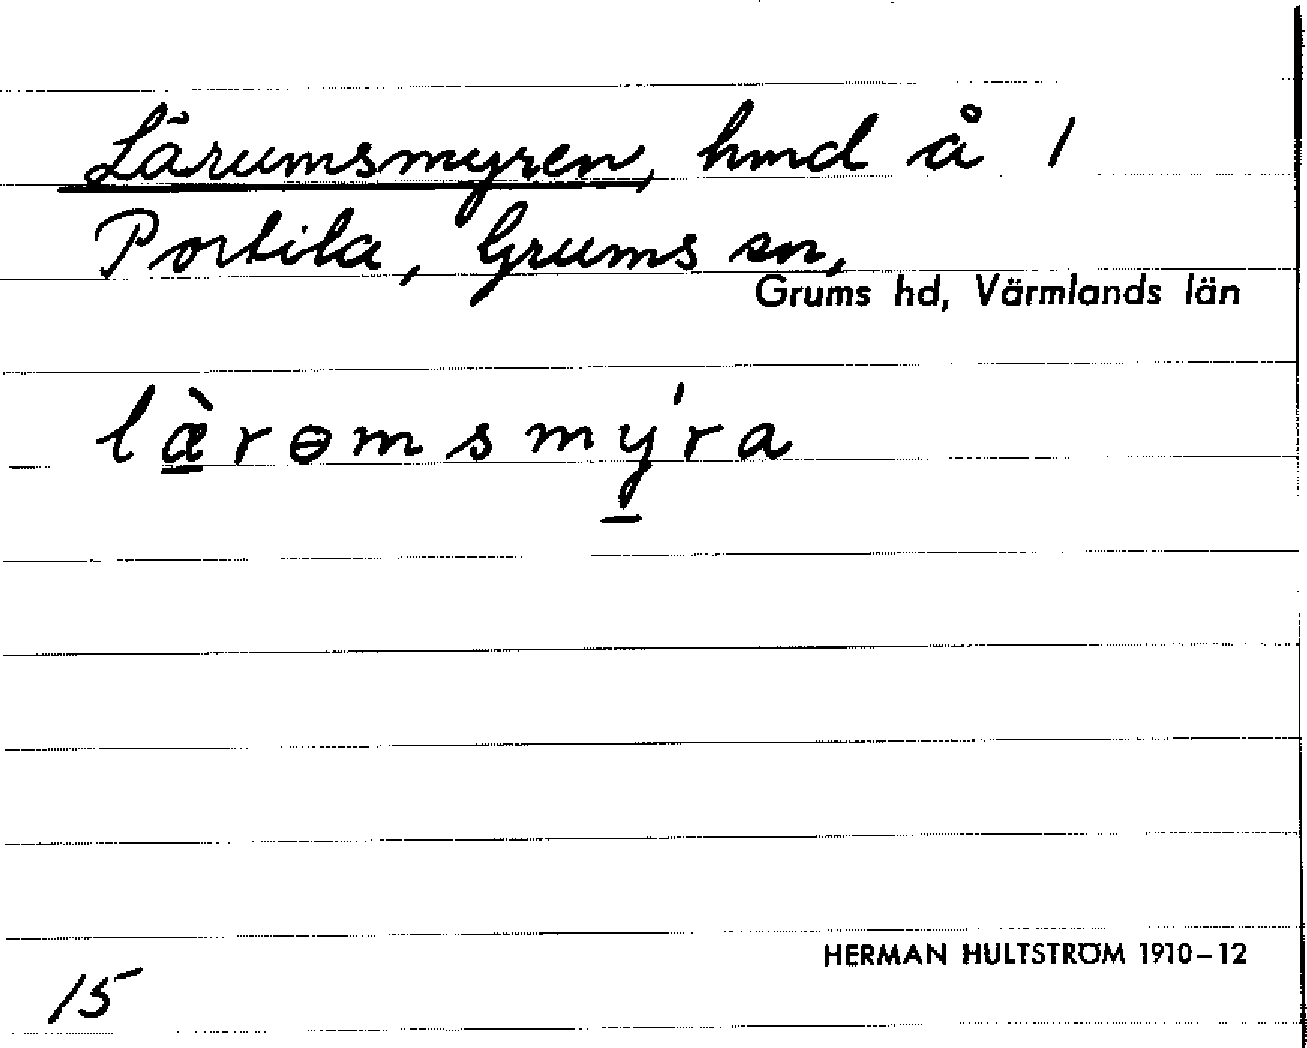 Lärumsmyren, hmd å 1
Portila, Grums sn,
Grums hd, Värmlands län
læ̱̀rɵmsmý̱ra
15
HERMAN HULTSTRÖM 1910–12